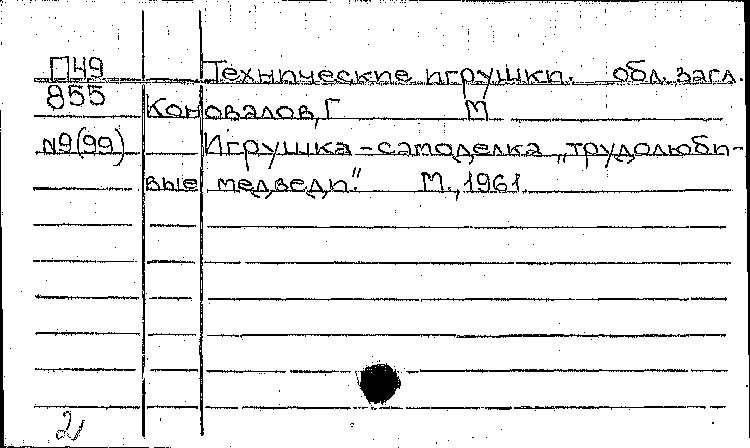 П49 Технические игрушки. обл. загл.
855 Коновалов, Г М
N9(99) Игрушка-самоделка „трудолюби-
вые медведи". М., 1961.
2